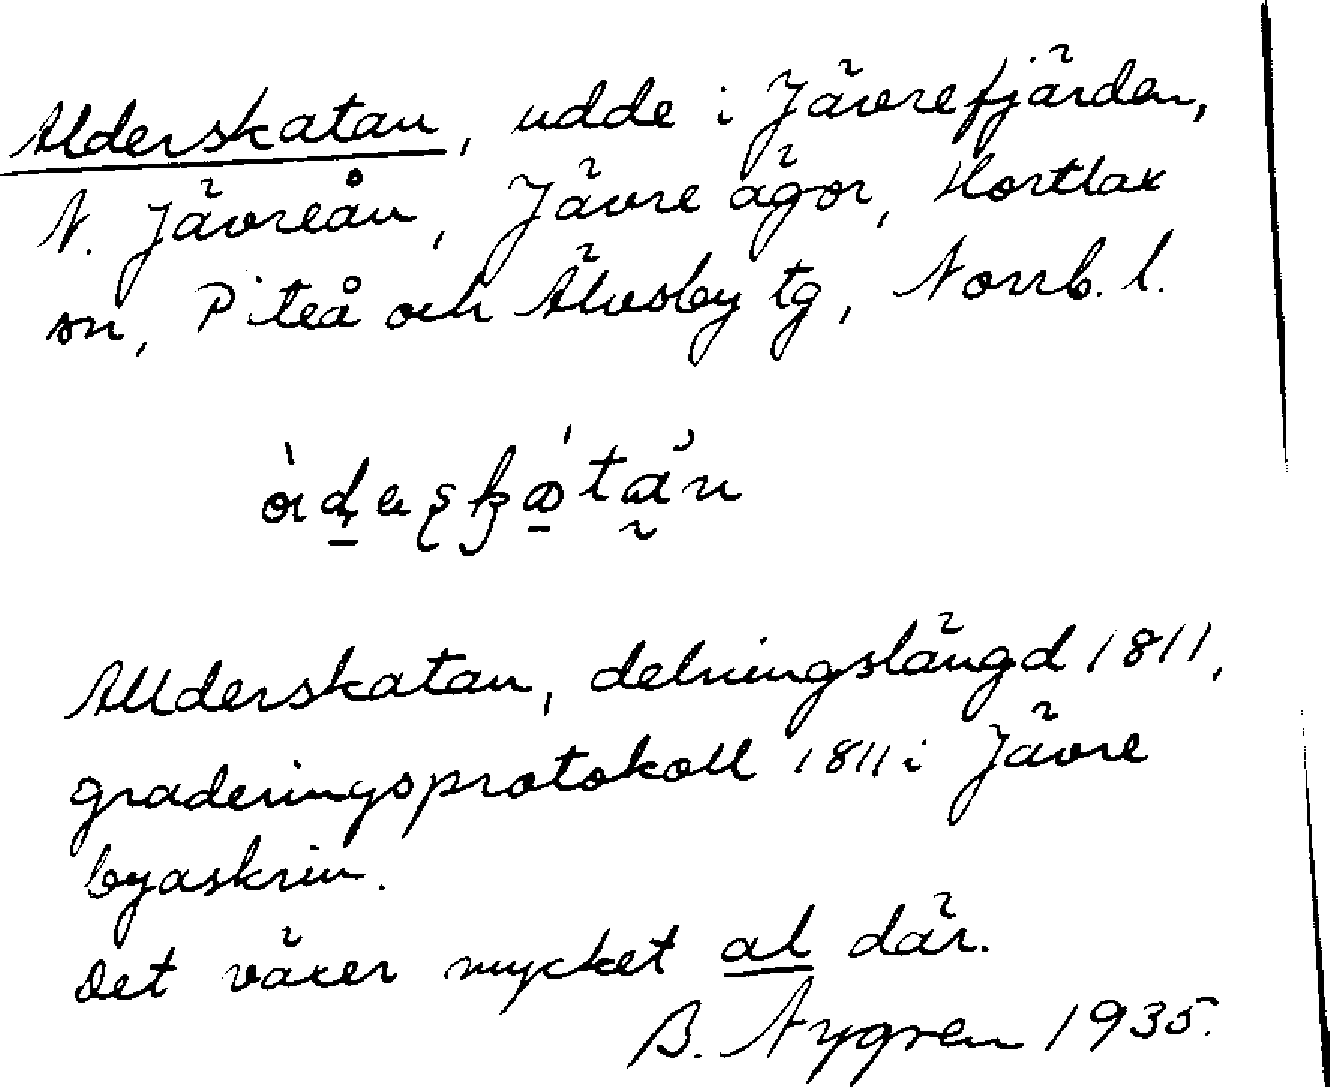 Alderskatan, udde i Jävrefjärden,
N. Jävreån, Jävre ägor, Hortlax
sn, Piteå och Älvsby tg, Norrb. l.
Allderskatan, delningslängd 1811,
graderingsprotokoll 1811 i Jävre
byaskrin.
Det växer mycket al där.
B. Nygren 1935.